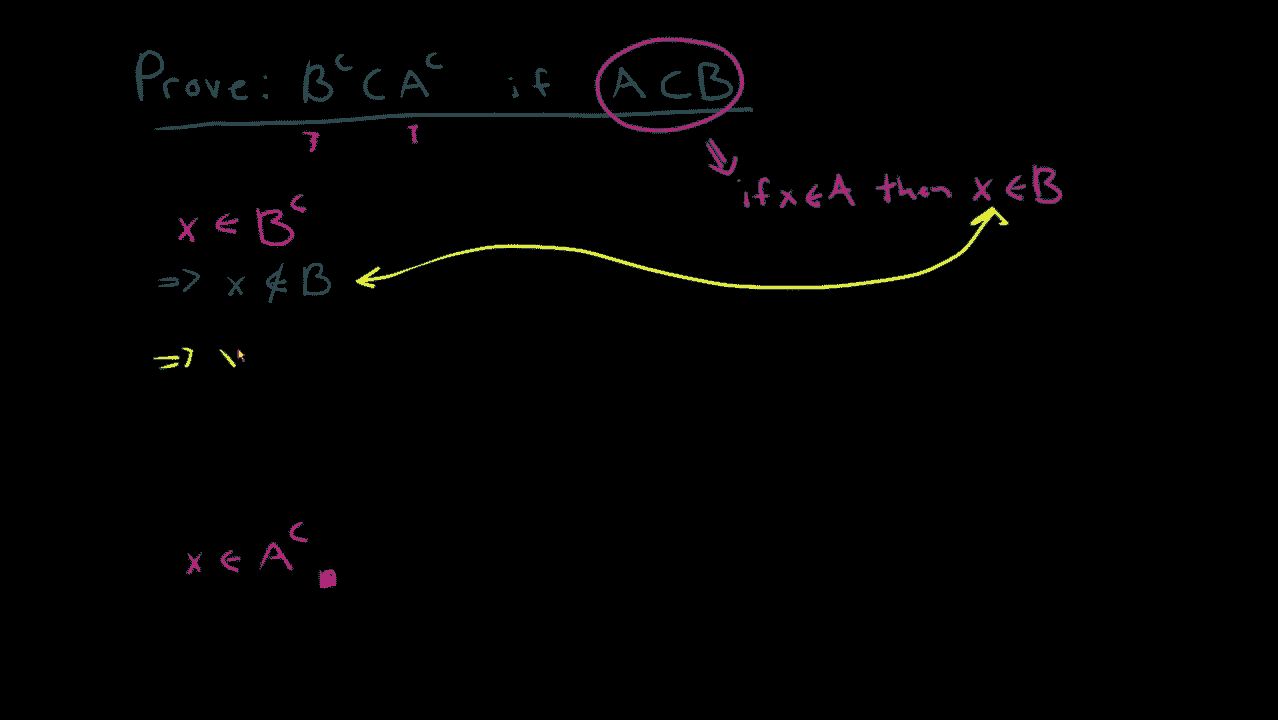 Prove: Bᶜ ⊂ Aᶜ if A ⊂ B
if x ∈ A then x ∈ B
x ∈ Bᶜ
⇒ x ∉ B
⇒
x ∈ Aᶜ